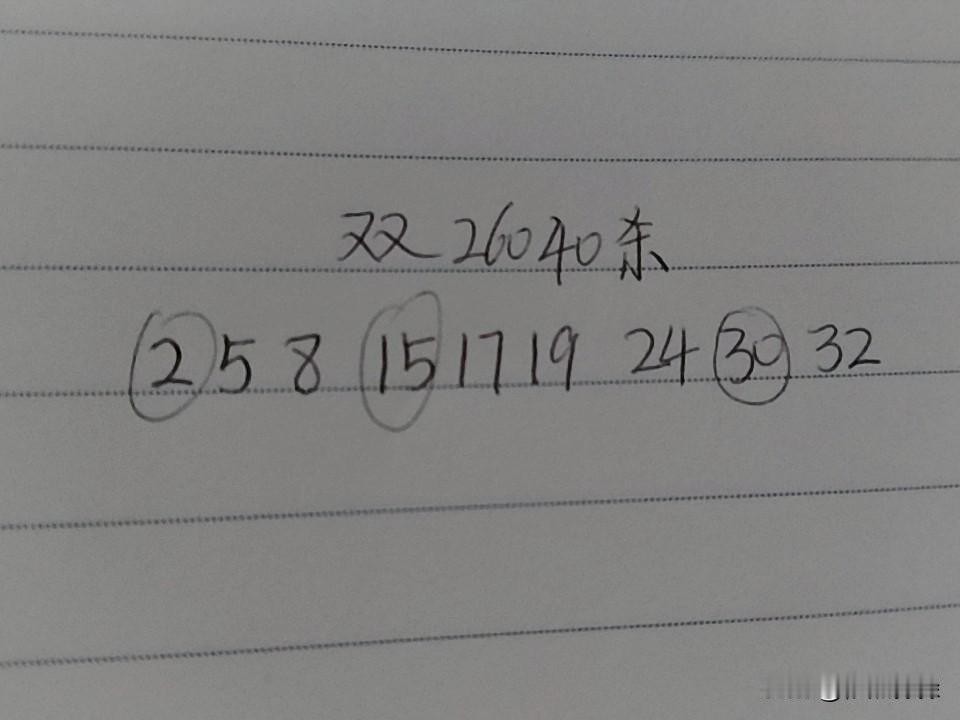 双26040杀
2 5 8 15 17 19 24 30 32